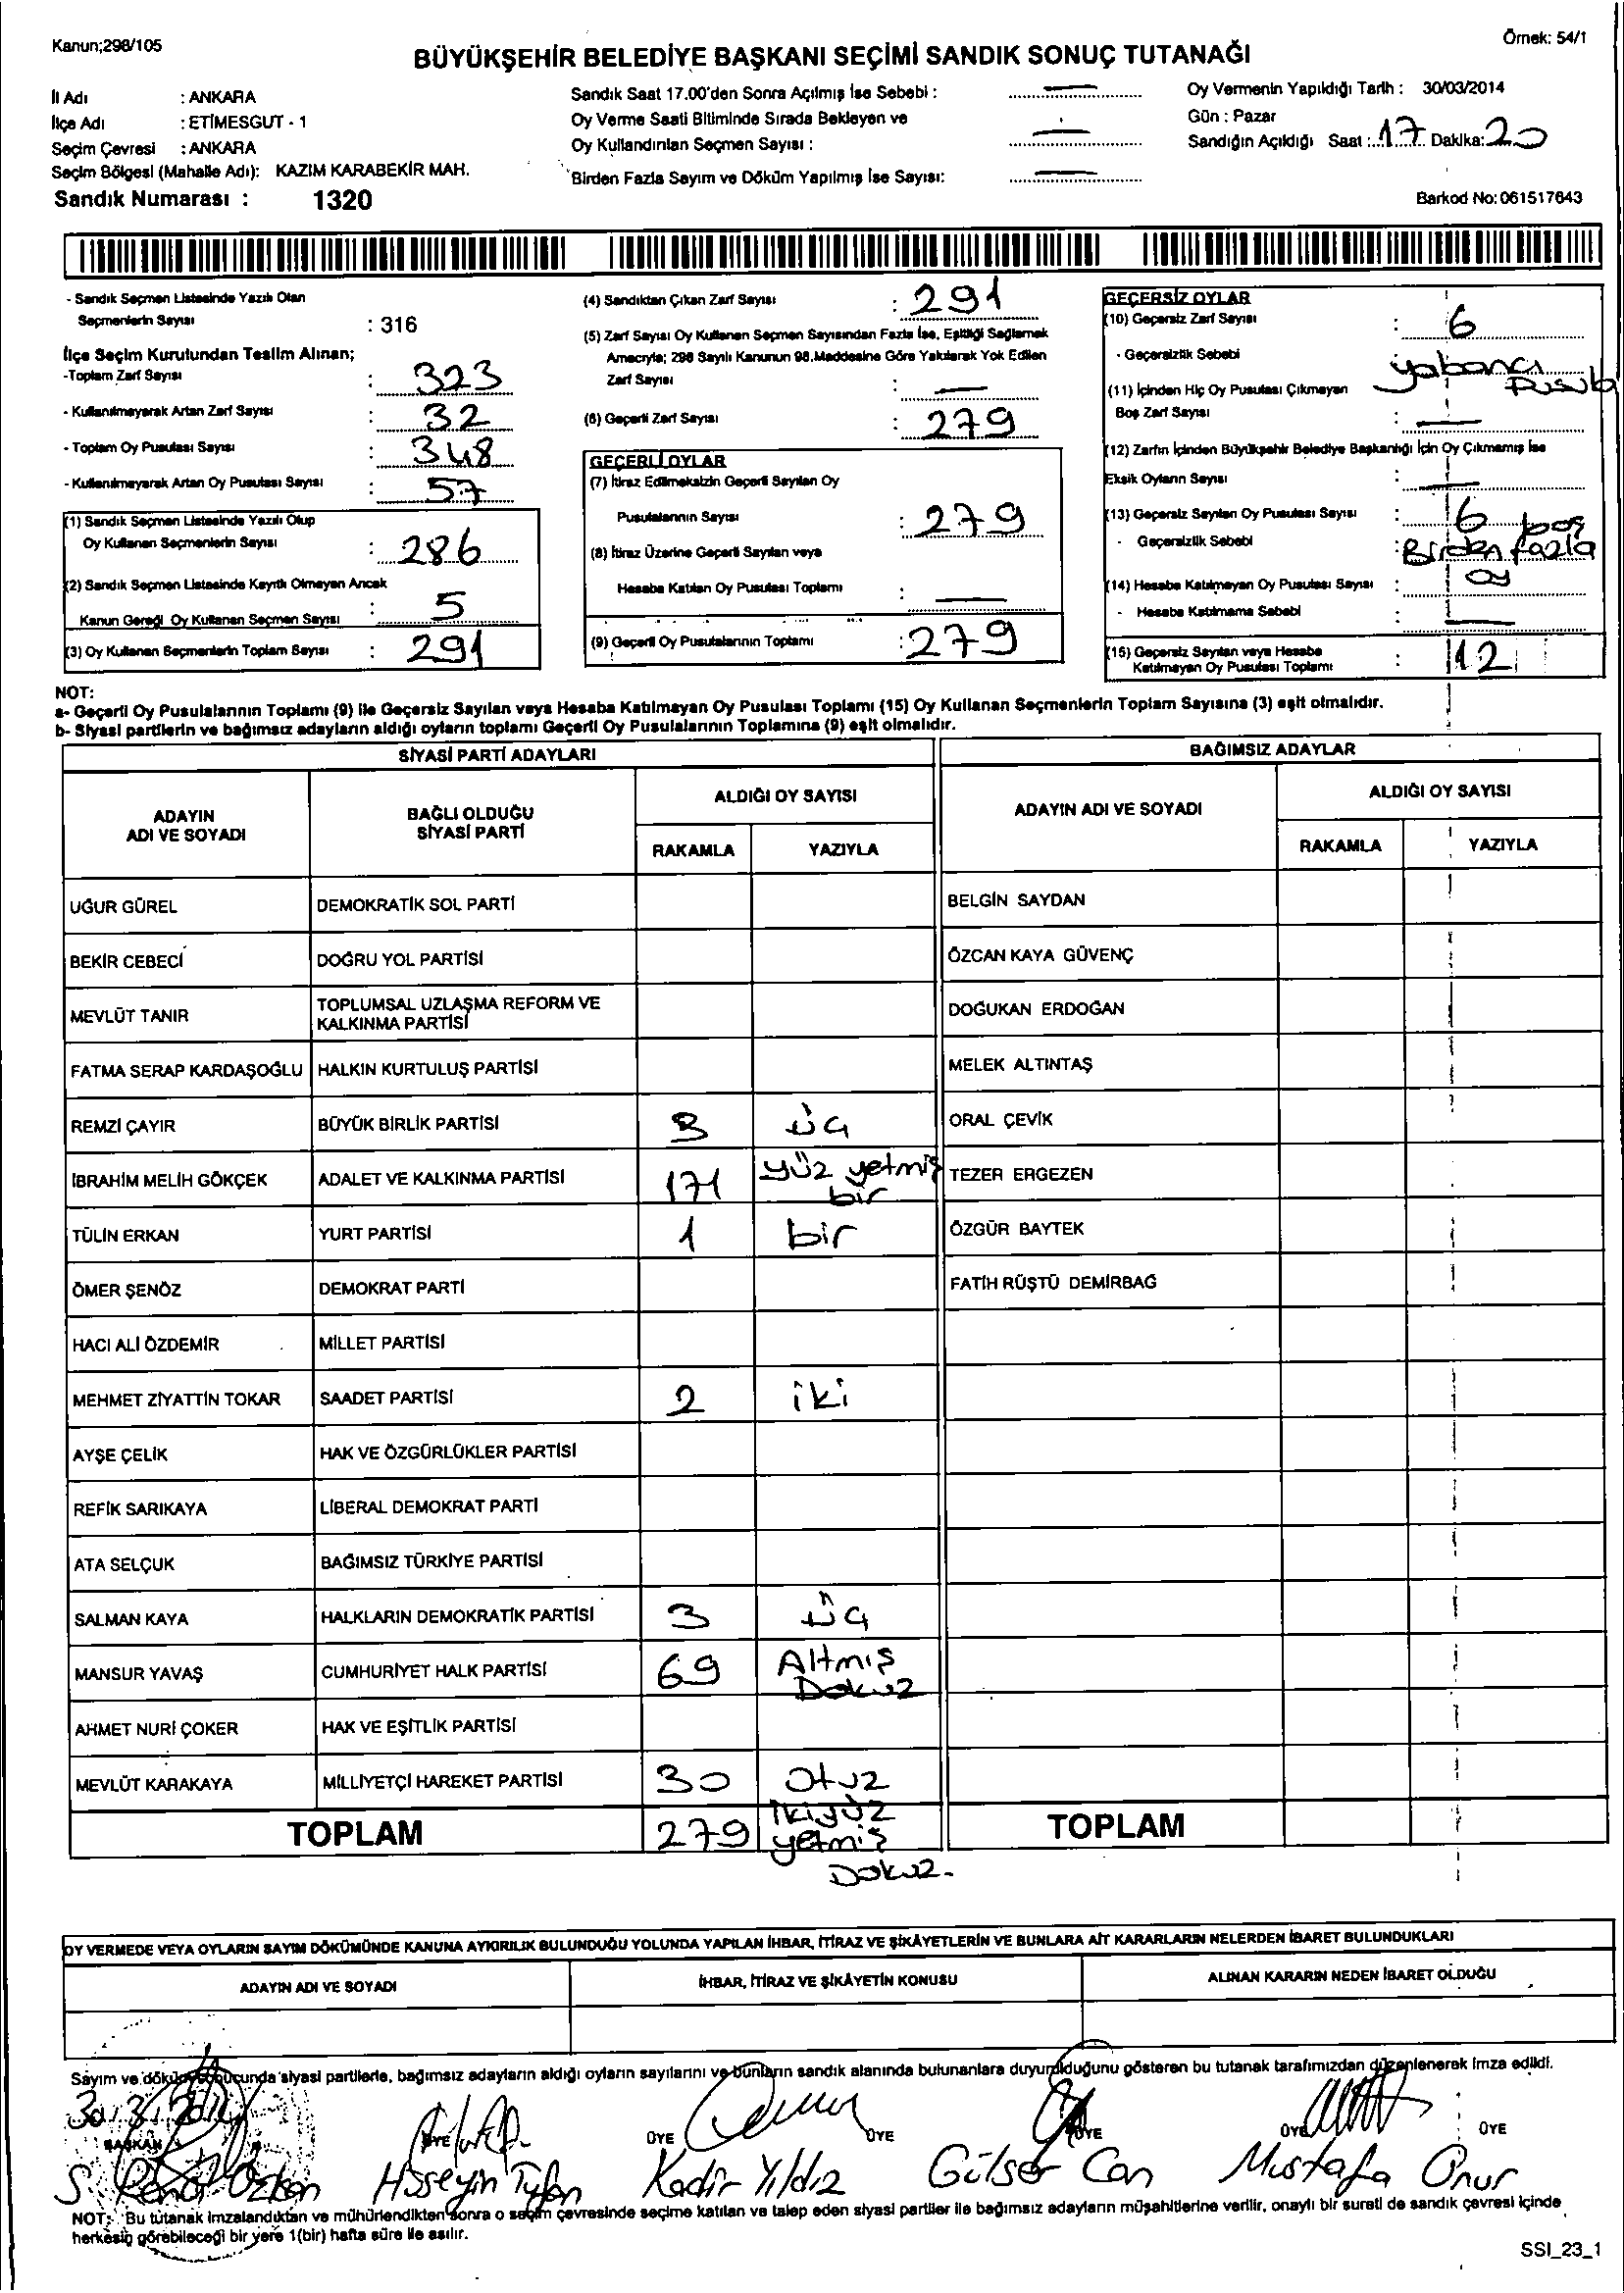 Kanun;298/105
Örnek: 54/1
BÜYÜKŞEHİR BELEDİYE BAŞKANI SEÇİMİ SANDIK SONUÇ TUTANAĞI
İl Adı : ANKARA
İlçe Adı : ETİMESGUT - 1
Seçim Çevresi : ANKARA
Seçim Bölgesi (Mahalle Adı): KAZIM KARABEKİR MAH.
Sandık Numarası : 1320
Sandık Saat 17.00'den Sonra Açılmış İse Sebebi : —
Oy Verme Saati Bitiminde Sırada Bekleyen ve
Oy Kullandırılan Seçmen Sayısı : —
Birden Fazla Sayım ve Döküm Yapılmış İse Sayısı: —
Oy Vermenin Yapıldığı Tarih : 30/03/2014
Gün : Pazar
Sandığın Açıldığı Saat : 17 Dakika: 20
Barkod No: 061517643
- Sandık Seçmen Listesinde Yazılı Olan
Seçmenlerin Sayısı : 316
İlçe Seçim Kurulundan Teslim Alınan;
-Toplam Zarf Sayısı : 323
- Kullanılmayarak Artan Zarf Sayısı : 32
- Toplam Oy Pusulası Sayısı : 348
- Kullanılmayarak Artan Oy Pusulası Sayısı : 57
(1) Sandık Seçmen Listesinde Yazılı Olup
Oy Kullanan Seçmenlerin Sayısı : 286
(2) Sandık Seçmen Listesinde Kayıtlı Olmayan Ancak
Kanun Gereği Oy Kullanan Seçmen Sayısı : 5
(3) Oy Kullanan Seçmenlerin Toplam Sayısı : 291
(4) Sandıktan Çıkan Zarf Sayısı : 291
(5) Zarf Sayısı Oy Kullanan Seçmen Sayısından Fazla İse, Eşitliği Sağlamak
Amacıyla; 298 Sayılı Kanunun 98.Maddesine Göre Yakılarak Yok Edilen
Zarf Sayısı : —
(6) Geçerli Zarf Sayısı : 279
GEÇERLİ OYLAR
(7) İtiraz Edilmeksizin Geçerli Sayılan Oy
Pusulalarının Sayısı : 279
(8) İtiraz Üzerine Geçerli Sayılan veya
Hesaba Katılan Oy Pusulası Toplamı : —
(9) Geçerli Oy Pusulalarının Toplamı : 279
GEÇERSİZ OYLAR
(10) Geçersiz Zarf Sayısı : 6
- Geçersizlik Sebebi : yabancı pusula
(11) İçinden Hiç Oy Pusulası Çıkmayan
Boş Zarf Sayısı : —
(12) Zarfın İçinden Büyükşehir Belediye Başkanlığı İçin Oy Çıkmamış İse
Eksik Oyların Sayısı : —
(13) Geçersiz Sayılan Oy Pusulası Sayısı : 6 boş
- Geçersizlik Sebebi : Birden fazla
oy
(14) Hesaba Katılmayan Oy Pusulası Sayısı :
- Hesaba Katılmama Sebebi : —
(15) Geçersiz Sayılan veya Hesaba
Katılmayan Oy Pusulası Toplamı : 12
NOT:
a- Geçerli Oy Pusulalarının Toplamı (9) ile Geçersiz Sayılan veya Hesaba Katılmayan Oy Pusulası Toplamı (15) Oy Kullanan Seçmenlerin Toplam Sayısına (3) eşit olmalıdır.
b- Siyasi partilerin ve bağımsız adayların aldığı oyların toplamı Geçerli Oy Pusulalarının Toplamına (9) eşit olmalıdır.
SİYASİ PARTİ ADAYLARI
ADAYIN ADI VE SOYADI BAĞLI OLDUĞU SİYASİ PARTİ ALDIĞI OY SAYISI
RAKAMLA YAZIYLA
UĞUR GÜREL DEMOKRATİK SOL PARTİ
BEKİR CEBECİ DOĞRU YOL PARTİSİ
MEVLÜT TANIR TOPLUMSAL UZLAŞMA REFORM VE KALKINMA PARTİSİ
FATMA SERAP KARDAŞOĞLU HALKIN KURTULUŞ PARTİSİ
REMZİ ÇAYIR BÜYÜK BİRLİK PARTİSİ 3 üç
İBRAHİM MELİH GÖKÇEK ADALET VE KALKINMA PARTİSİ 171 yüz yetmiş bir
TÜLİN ERKAN YURT PARTİSİ 1 bir
ÖMER ŞENÖZ DEMOKRAT PARTİ
HACI ALİ ÖZDEMİR MİLLET PARTİSİ
MEHMET ZİYATTİN TOKAR SAADET PARTİSİ 2 iki
AYŞE ÇELİK HAK VE ÖZGÜRLÜKLER PARTİSİ
REFİK SARIKAYA LİBERAL DEMOKRAT PARTİ
ATA SELÇUK BAĞIMSIZ TÜRKİYE PARTİSİ
SALMAN KAYA HALKLARIN DEMOKRATİK PARTİSİ 3 üç
MANSUR YAVAŞ CUMHURİYET HALK PARTİSİ 69 Altmış Dokuz
AHMET NURİ ÇOKER HAK VE EŞİTLİK PARTİSİ
MEVLÜT KARAKAYA MİLLİYETÇİ HAREKET PARTİSİ 30 otuz
TOPLAM 279 ikiyüz yetmiş Dokuz.
BAĞIMSIZ ADAYLAR
ADAYIN ADI VE SOYADI ALDIĞI OY SAYISI
RAKAMLA YAZIYLA
BELGİN SAYDAN
ÖZCAN KAYA GÜVENÇ
DOĞUKAN ERDOĞAN
MELEK ALTINTAŞ
ORAL ÇEVİK
TEZER ERGEZEN
ÖZGÜR BAYTEK
FATİH RÜŞTÜ DEMİRBAĞ
TOPLAM
OY VERMEDE VEYA OYLARIN SAYIM DÖKÜMÜNDE KANUNA AYKIRILIK BULUNDUĞU YOLUNDA YAPILAN İHBAR, İTİRAZ VE ŞİKÂYETLERİN VE BUNLARA AİT KARARLARIN NELERDEN İBARET BULUNDUKLARI
ADAYIN ADI VE SOYADI İHBAR, İTİRAZ VE ŞİKÂYETİN KONUSU ALINAN KARARIN NEDEN İBARET OLDUĞU
Sayım ve döküm sonucunda siyasi partilerle, bağımsız adayların aldığı oyların sayılarını ve bunların sandık alanında bulunanlara duyurulduğunu gösteren bu tutanak tarafımızdan düzenlenerek imza edildi.
BAŞKAN ÜYE ÜYE ÜYE ÜYE ÜYE ÜYE
Özkan Hüseyin Kadir Yıldız Gülser Can Mustafa Onur
NOT: Bu tutanak imzalandıktan ve mühürlendikten sonra o seçim çevresinde seçime katılan ve talep eden siyasi partiler ile bağımsız adayların müşahitlerine verilir, onaylı bir sureti de sandık çevresi içinde
herkesin görebileceği bir yere 1(bir) hafta süre ile asılır.
SSI_23_1